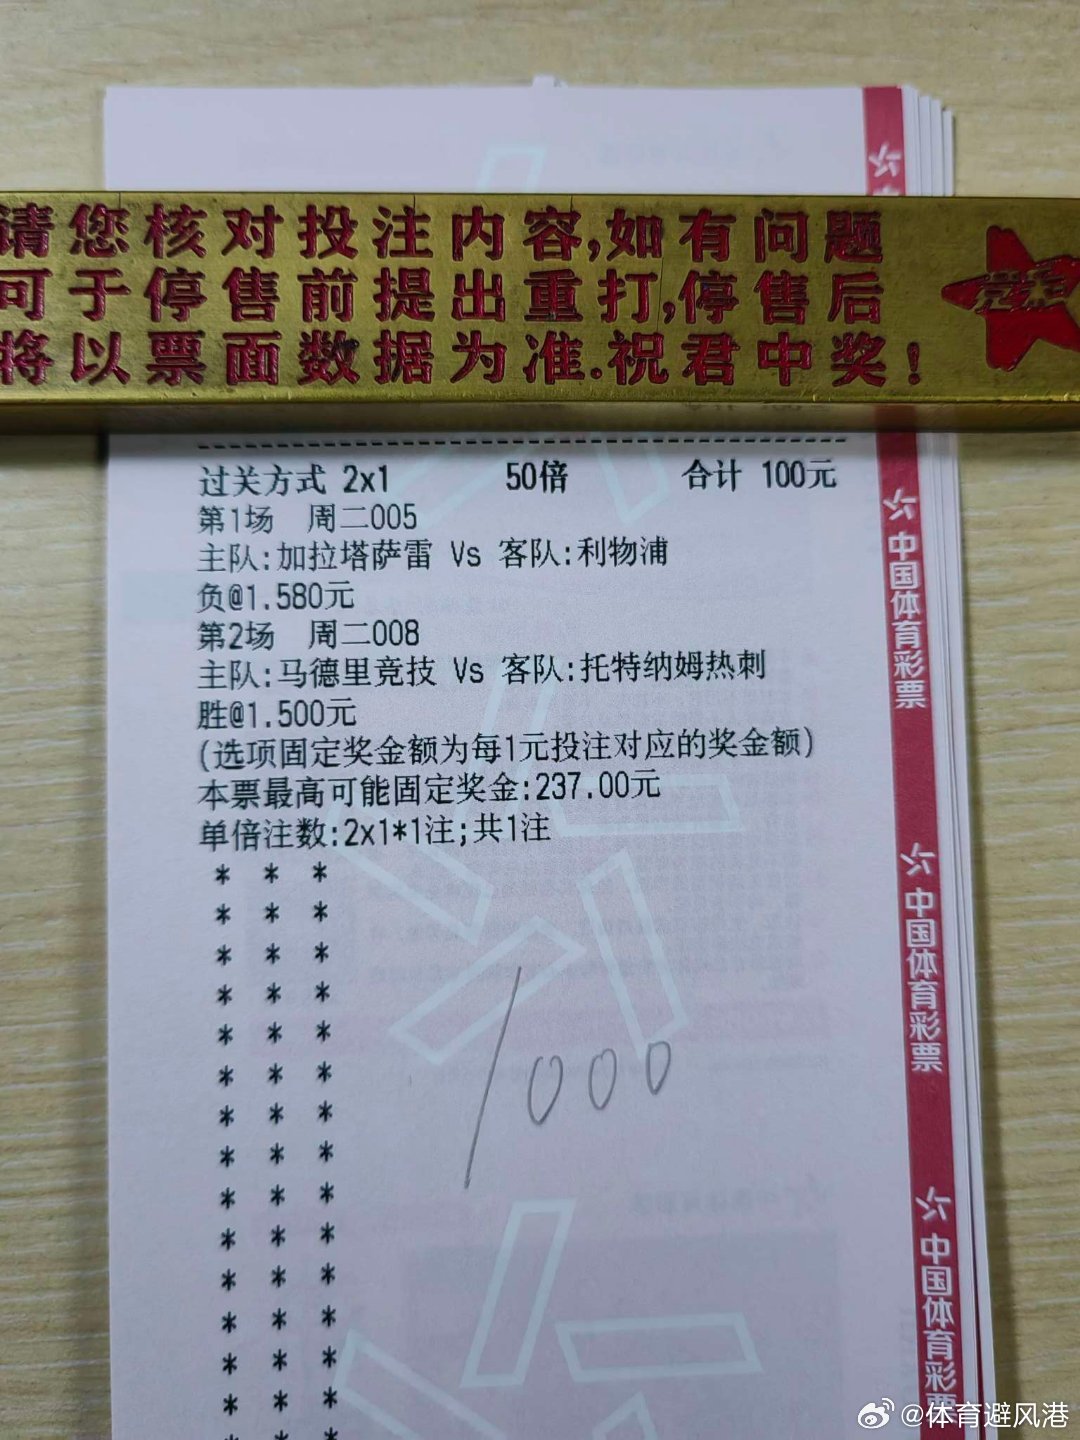 请您核对投注内容,如有问题
可于停售前提出重打,停售后
将以票面数据为准.祝君中奖!
过关方式 2x1 50倍 合计 100元
第1场 周二005
主队:加拉塔萨雷 Vs 客队:利物浦
负@1.580元
第2场 周二008
主队:马德里竞技 Vs 客队:托特纳姆热刺
胜@1.500元
(选项固定奖金额为每1元投注对应的奖金额)
本票最高可能固定奖金:237.00元
单倍注数:2x1*1注;共1注
* * *
* * *
* * *
* * *
* * *
* * *
* * *
* * *
* * *
* * *
* * *
* * *
* * *
* * *
1000
中国体育彩票
中国体育彩票
中国体育彩票
@体育避风港